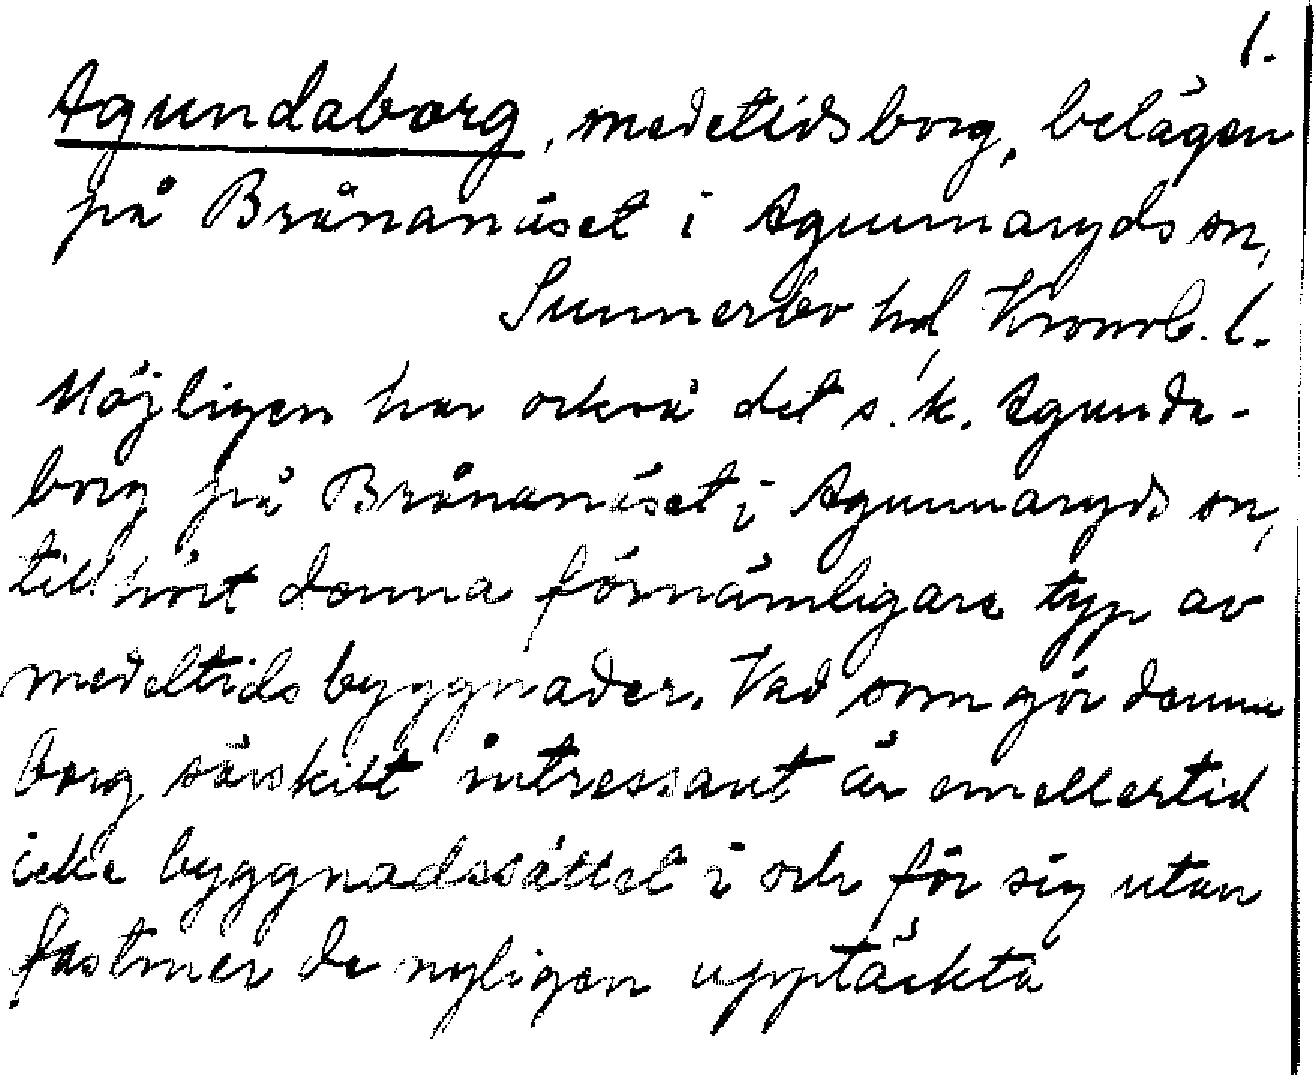 1.
Agundaborg, medetidsborg, belägen
på Brånanäset i Agunnaryds sn,
Sunnerbo hd, Kronob. l.
Möjligen har också det s.k. Agunda-
borg på Brånanäset i Agunnaryds sn,
tillhört denna förnämligare typ av
medeltidsbyggnader. Vad som gör denna
borg särskilt intressant är emellertid
icke byggnadssättet i och för sig utan
fastmer de nyligen upptäckta